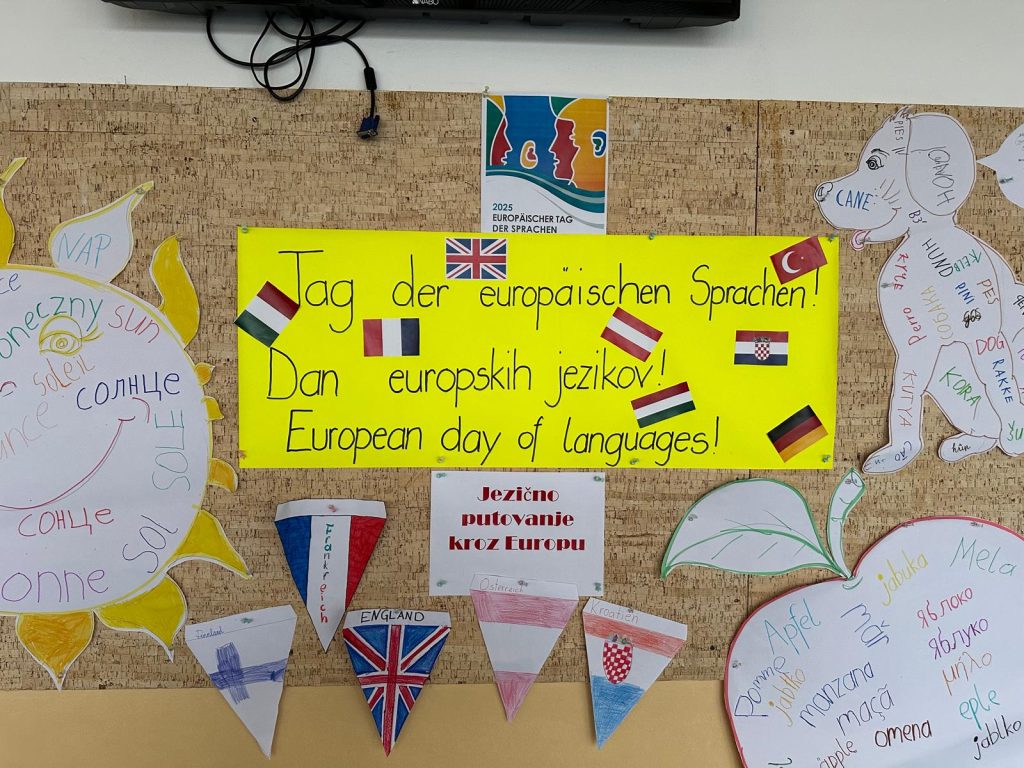 NABO
2025
EUROPÄISCHER TAG
DER SPRACHEN
Tag der europäischen Sprachen!
Dan europskih jezikov!
European day of languages!
Jezično
putovanje
kroz Europu
NAP
sun
soleil
солнце
SOLE
сонце
SOL
onne
Frankreich
Finnland
ENGLAND
Österreich
Kroatien
PIES
CANE
HUND
PES
PINI
DOG
RAKKE
KORA
Perro
KUTYA
CÃO
hûn
Apfel
jabuka
Mela
măr
яблоко
яблуко
μήλο
pomme
jabłko
manzana
maçã
eple
apple
omena
jablko